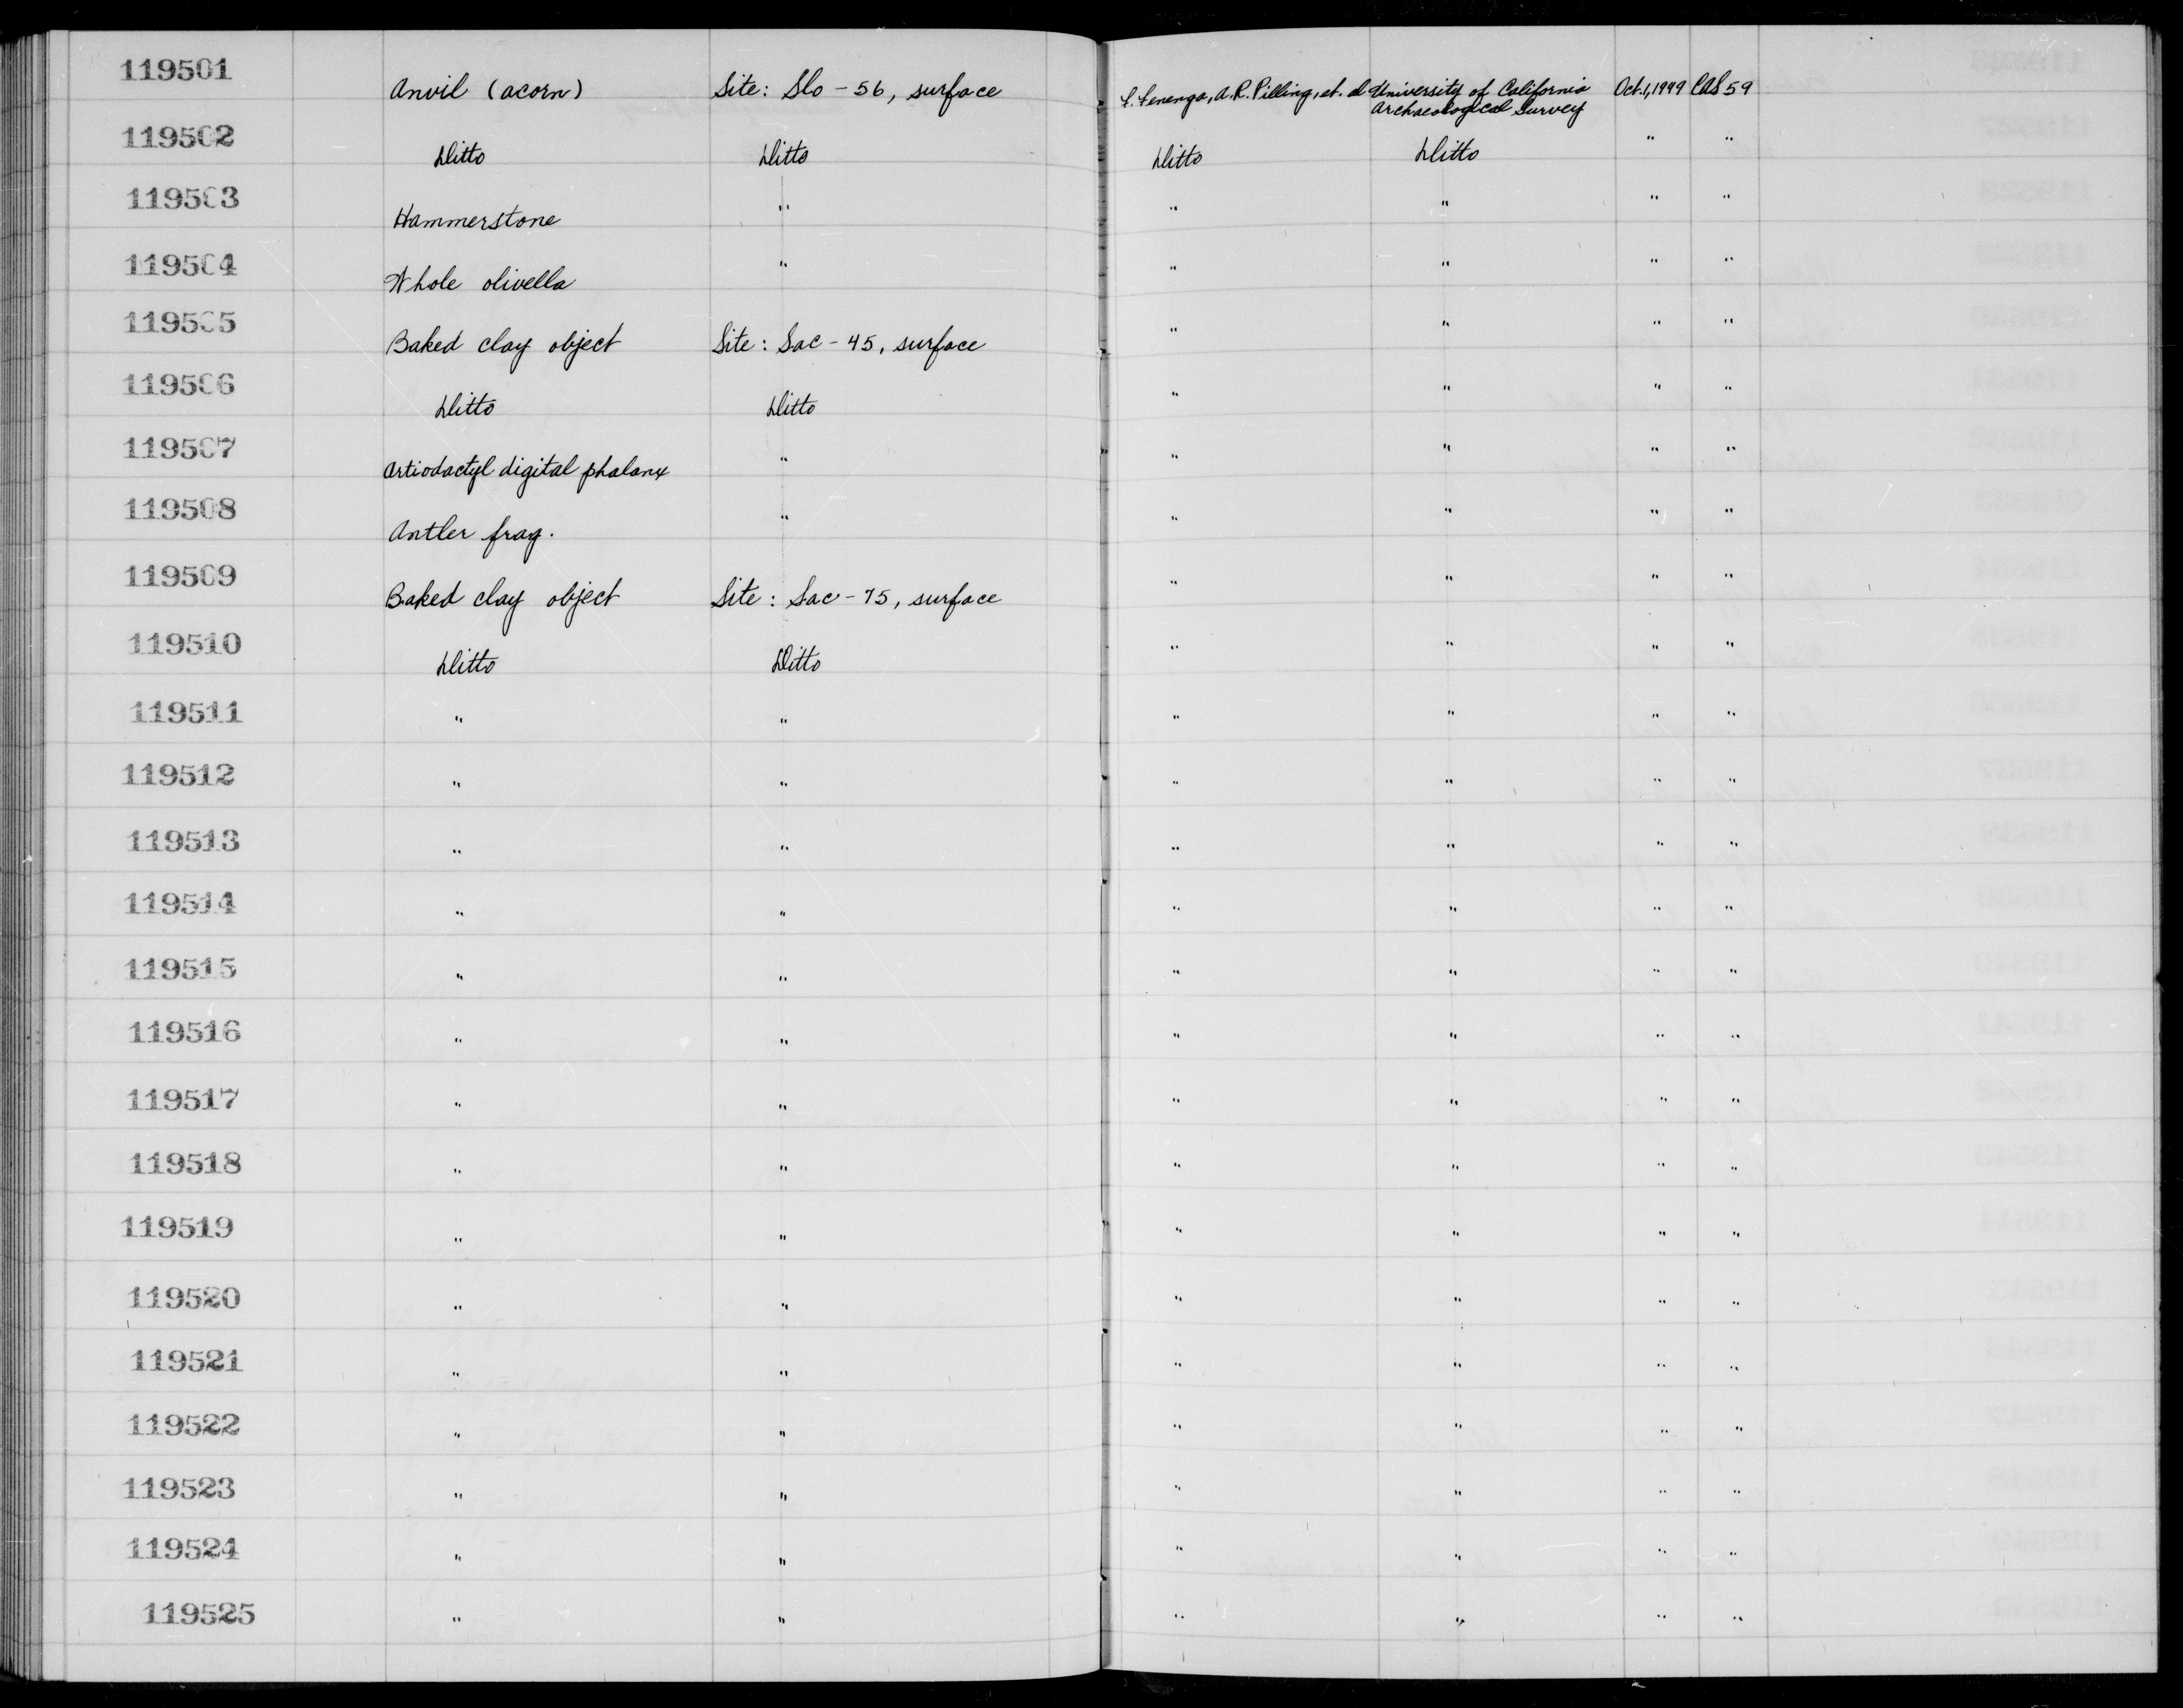 119501 Anvil (acorn) Site: Slo - 56, surface F. Fenenga, A.R. Pilling, et. al University of California Archaeological Survey Oct. 1, 1949 CAS 59
119502 Ditto Ditto Ditto Ditto " "
119503 Hammerstone " " " " "
119504 Whole olivella " " " " "
119505 Baked clay object Site: Sac - 45, surface " " " "
119506 Ditto Ditto " " " "
119507 Artiodactyl digital phalanx " " " " "
119508 Antler frag. " " " " "
119509 Baked clay object Site: Sac - 75, surface " " " "
119510 Ditto Ditto " " " "
119511 " " " " " "
119512 " " " " " "
119513 " " " " " "
119514 " " " " " "
119515 " " " " " "
119516 " " " " " "
119517 " " " " " "
119518 " " " " " "
119519 " " " " " "
119520 " " " " " "
119521 " " " " " "
119522 " " " " " "
119523 " " " " " "
119524 " " " " " "
119525 " " " " " "